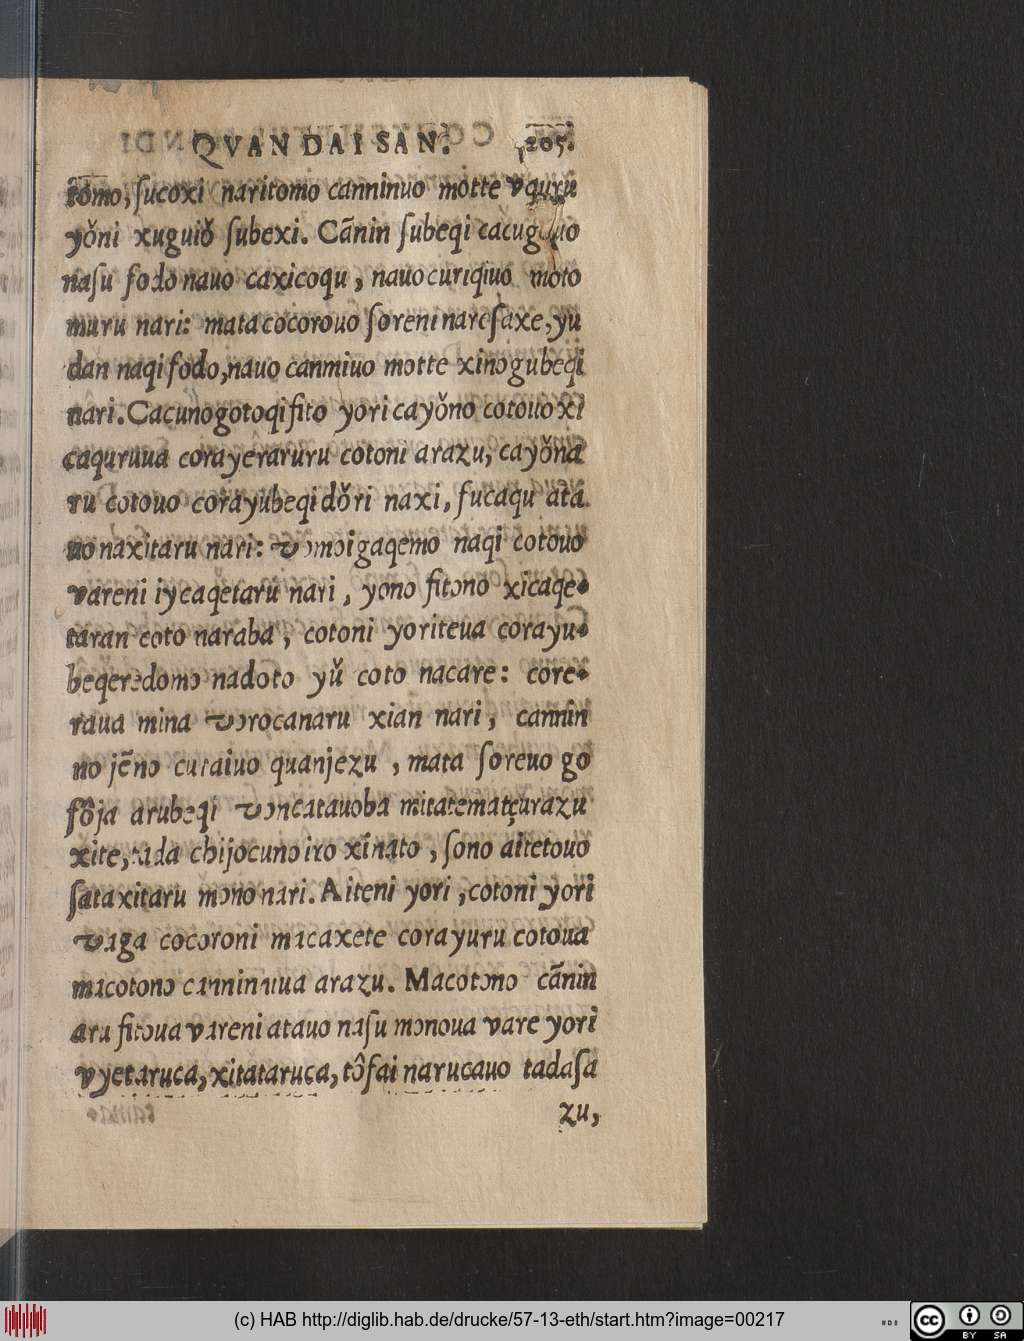 QVAN DAI SAN. 205.
tômo, ſucoxi naritomo canninuo motte vquru
yǒni xuguiǒ ſubexi. Cãnin ſubeqi cacugouo
naſu fodo nauo caxicoqu, nauo curiqiuo moto
muru nari: mata cocorouo ſoreni nareſaxe, yu
dan naqi fodo, nauo canmiuo motte xinogubeqi
nari. Cacunogotoqi fito yori cayǒno cotouo xi
caquruua corayeraruru cotoni arazu, cayǒna
ru cotouo corayubeqi dǒri naxi, fucaqu ata
uo naxitaru nari: vomoigaqemo naqi cotouo
vareni iyeaqetaru nari, yono fitono xicaqe-
taran coto naraba, cotoni yoriteua corayu-
beqeredomo nadoto yǔ coto nacare: core-
raua mina vorocanaru xian nari, cannin
no jẽno curaiuo quanjezu, mata ſoreuo go
fôja arubeqi voncatauoba mitatematçurazu
xite, tada chijocuno iro xinato, ſono aitetouo
ſataxitaru mono nari. Aiteni yori, cotoni yori
vaga cocoroni macaxete corayuru cotoua
macotono canninniua arazu. Macotono cãnin
aru fitoua vareni atauo naſu monoua vare yori
vyetaruca, xitataruca, tôfai narucauo tadaſa
zu,
(c) HAB http://diglib.hab.de/drucke/57-13-eth/start.htm?image=00217
cc BY SA